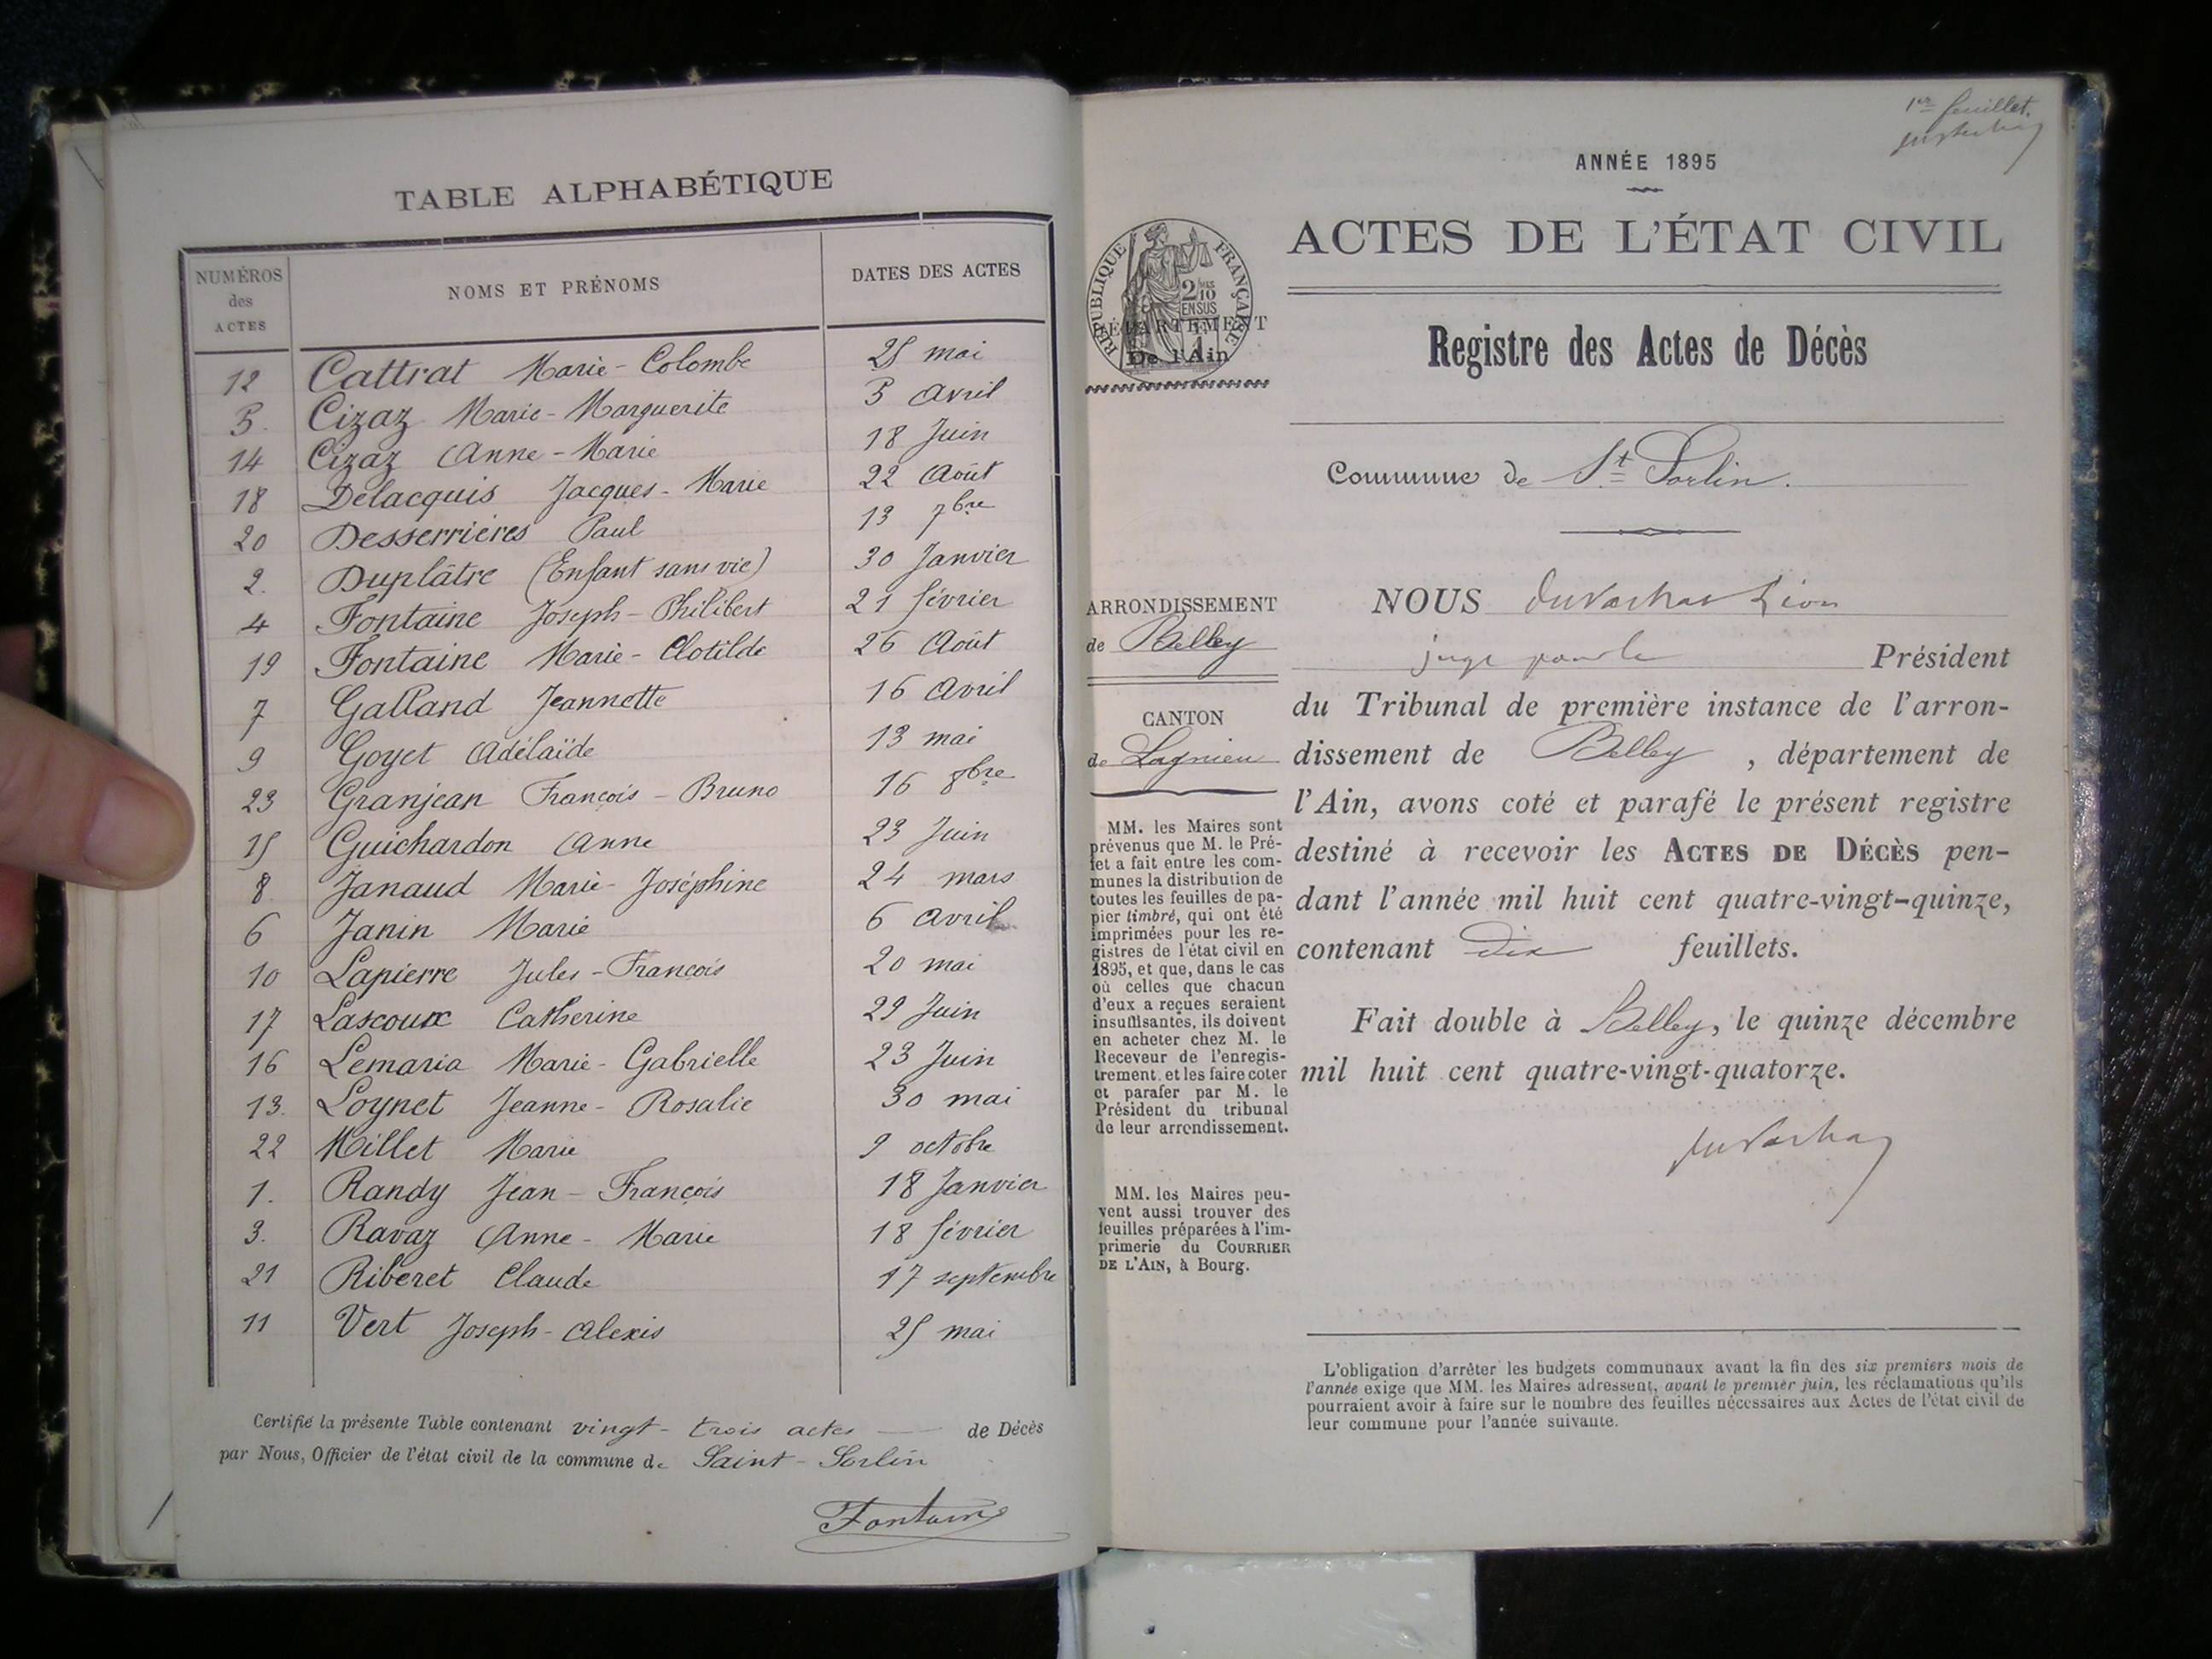 TABLE ALPHABÉTIQUE
NUMÉROS des ACTES NOMS ET PRÉNOMS DATES DES ACTES
12 Cattrat Marie-Colombe 25 mai
5. Cizaz Marie-Marguerite 3 avril
14 Cizaz Anne-Marie 18 Juin
18 Delacquis Jacques-Marie 22 Août
20 Desserrières Paul 13 7bre
2. Duplâtre (Enfant sans vie) 30 Janvier
4 Fontaine Joseph-Philibert 21 février
19 Fontaine Marie-Clotilde 26 Août
7 Galland Jeannette 16 avril
9 Goyet Adélaïde 13 mai
23 Granjean François-Bruno 16 8bre
15 Guichardon Anne 23 Juin
8. Janaud Marie-Joséphine 24 mars
6 Janin Marie 6 avril
10 Lapierre Jules-François 20 mai
17 Lascoux Catherine 29 Juin
16 Lemaria Marie-Gabrielle 23 Juin
13. Loynet Jeanne-Rosalie 30 mai
22 Millet Marie 9 octobre
1. Randy Jean-François 18 Janvier
3. Ravaz Anne-Marie 18 février
21 Riberet Claude 17 septembre
11 Vert Joseph-Alexis 25 mai
Certifié la présente Table contenant vingt-trois actes de Décès
par Nous, Officier de l'état civil de la commune de Saint-Sorlin
Fontaine
1er feuillet.
ANNÉE 1895
ACTES DE L'ÉTAT CIVIL
RÉPUBLIQUE FRANÇAISE
2/10 EN SUS
DÉPARTEMENT
De l'Ain
Registre des Actes de Décès
Commune de St Sorlin.
ARRONDISSEMENT
de Belley
CANTON
de Lagnieu
MM. les Maires sont
prévenus que M. le Pré-
fet a fait entre les com-
munes la distribution de
toutes les feuilles de pa-
pier timbré, qui ont été
imprimées pour les re-
gistres de l'état civil en
1895, et que, dans le cas
où celles que chacun
d'eux a reçues seraient
insuffisantes, ils doivent
en acheter chez M. le
Receveur de l'enregis-
trement, et les faire coter
et parafer par M. le
Président du tribunal
de leur arrondissement.
MM. les Maires peu-
vent aussi trouver des
feuilles préparées à l'im-
primerie du COURRIER
DE L'AIN, à Bourg.
NOUS
juge pour le Président
du Tribunal de première instance de l'arron-
dissement de Belley, département de
l'Ain, avons coté et parafé le présent registre
destiné à recevoir les ACTES DE DÉCÈS pen-
dant l'année mil huit cent quatre-vingt-quinze,
contenant dix feuillets.
Fait double à Belley, le quinze décembre
mil huit cent quatre-vingt-quatorze.
L'obligation d'arrêter les budgets communaux avant la fin des six premiers mois de
l'année exige que MM. les Maires adressent, avant le premier juin, les réclamations qu'ils
pourraient avoir à faire sur le nombre des feuilles nécessaires aux Actes de l'état civil de
leur commune pour l'année suivante.